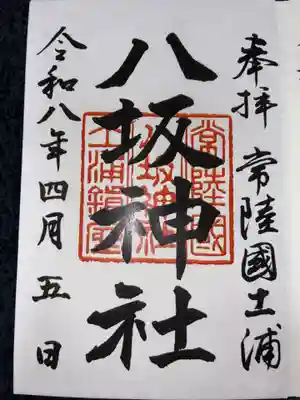 奉拝 常陸國土浦
八坂神社
常陸國
八坂神社
土浦鎮守
令和八年四月五日